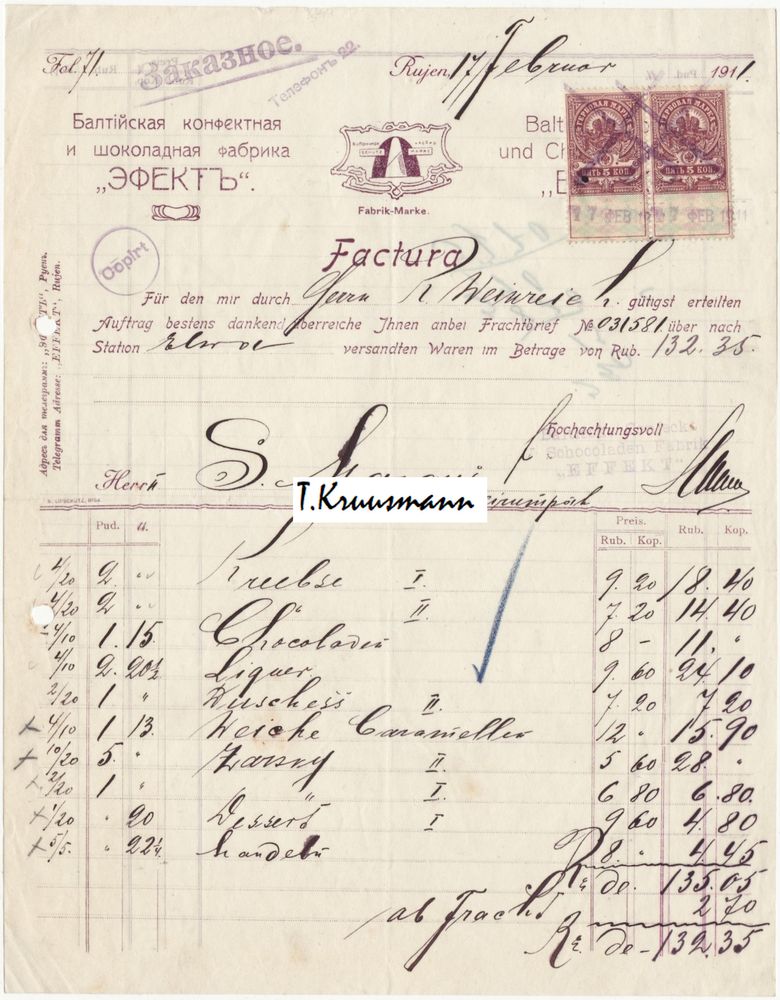 Fol. 71
Заказное.
Телефонъ 22.
Rujen, 17 Februar 1911.
Балтійская конфектная
и шоколадная фабрика
„ЭФЕКТЪ“.
SCHUTZ MARKE
Fabrik-Marke.
Balt
und Ch
„E
ГЕРБОВАЯ МАРКА
ПЯТЬ 5 КОП
17 ФЕВ 1911
ГЕРБОВАЯ МАРКА
ПЯТЬ 5 КОП
17 ФЕВ 1911
Copirt
Factura
Für den mir durch Herrn R Weinreich. gütigst erteilten
Auftrag bestens dankend überreiche Ihnen anbei Frachtbrief № 031581 über nach
Station Elwa versandten Waren im Betrage von Rub. 132.35.
Адресъ для телеграммъ: „ЭФЕКТЪ“, Руенъ.
Telegramm Adresse: „EFFEKT“, Rujen.
Hochachtungsvoll
Schocoladen Fabrik
"EFFEKT"
Herrn S.
T.Kruusmann
Pud. U. Preis. Rub. Kop.
Rub. Kop.
4/20 2 " Krebse I. 9. 20 18. 40
4/20 2 " " II. 7. 20 14. 40
4/10 1. 15. Chocoladen 8 – 11. "
4/10 2. 20½ Liquer 9. 60 24. 10
2/20 1 " Duschess II. 7. 20 7. 20
4/10 1 13. Weiche Caramellen 12 " 15. 90
10/20 5. " Zarsky II. 5 60 28. "
2/20 1 " " I. 6 80 6. 80.
1/20 " 20 Dessert I 9 60 4. 80
5/5. " 22¼ Mandeln 8. " 4. 45
de. 135.05
ab Fracht 2 70
de – 132.35